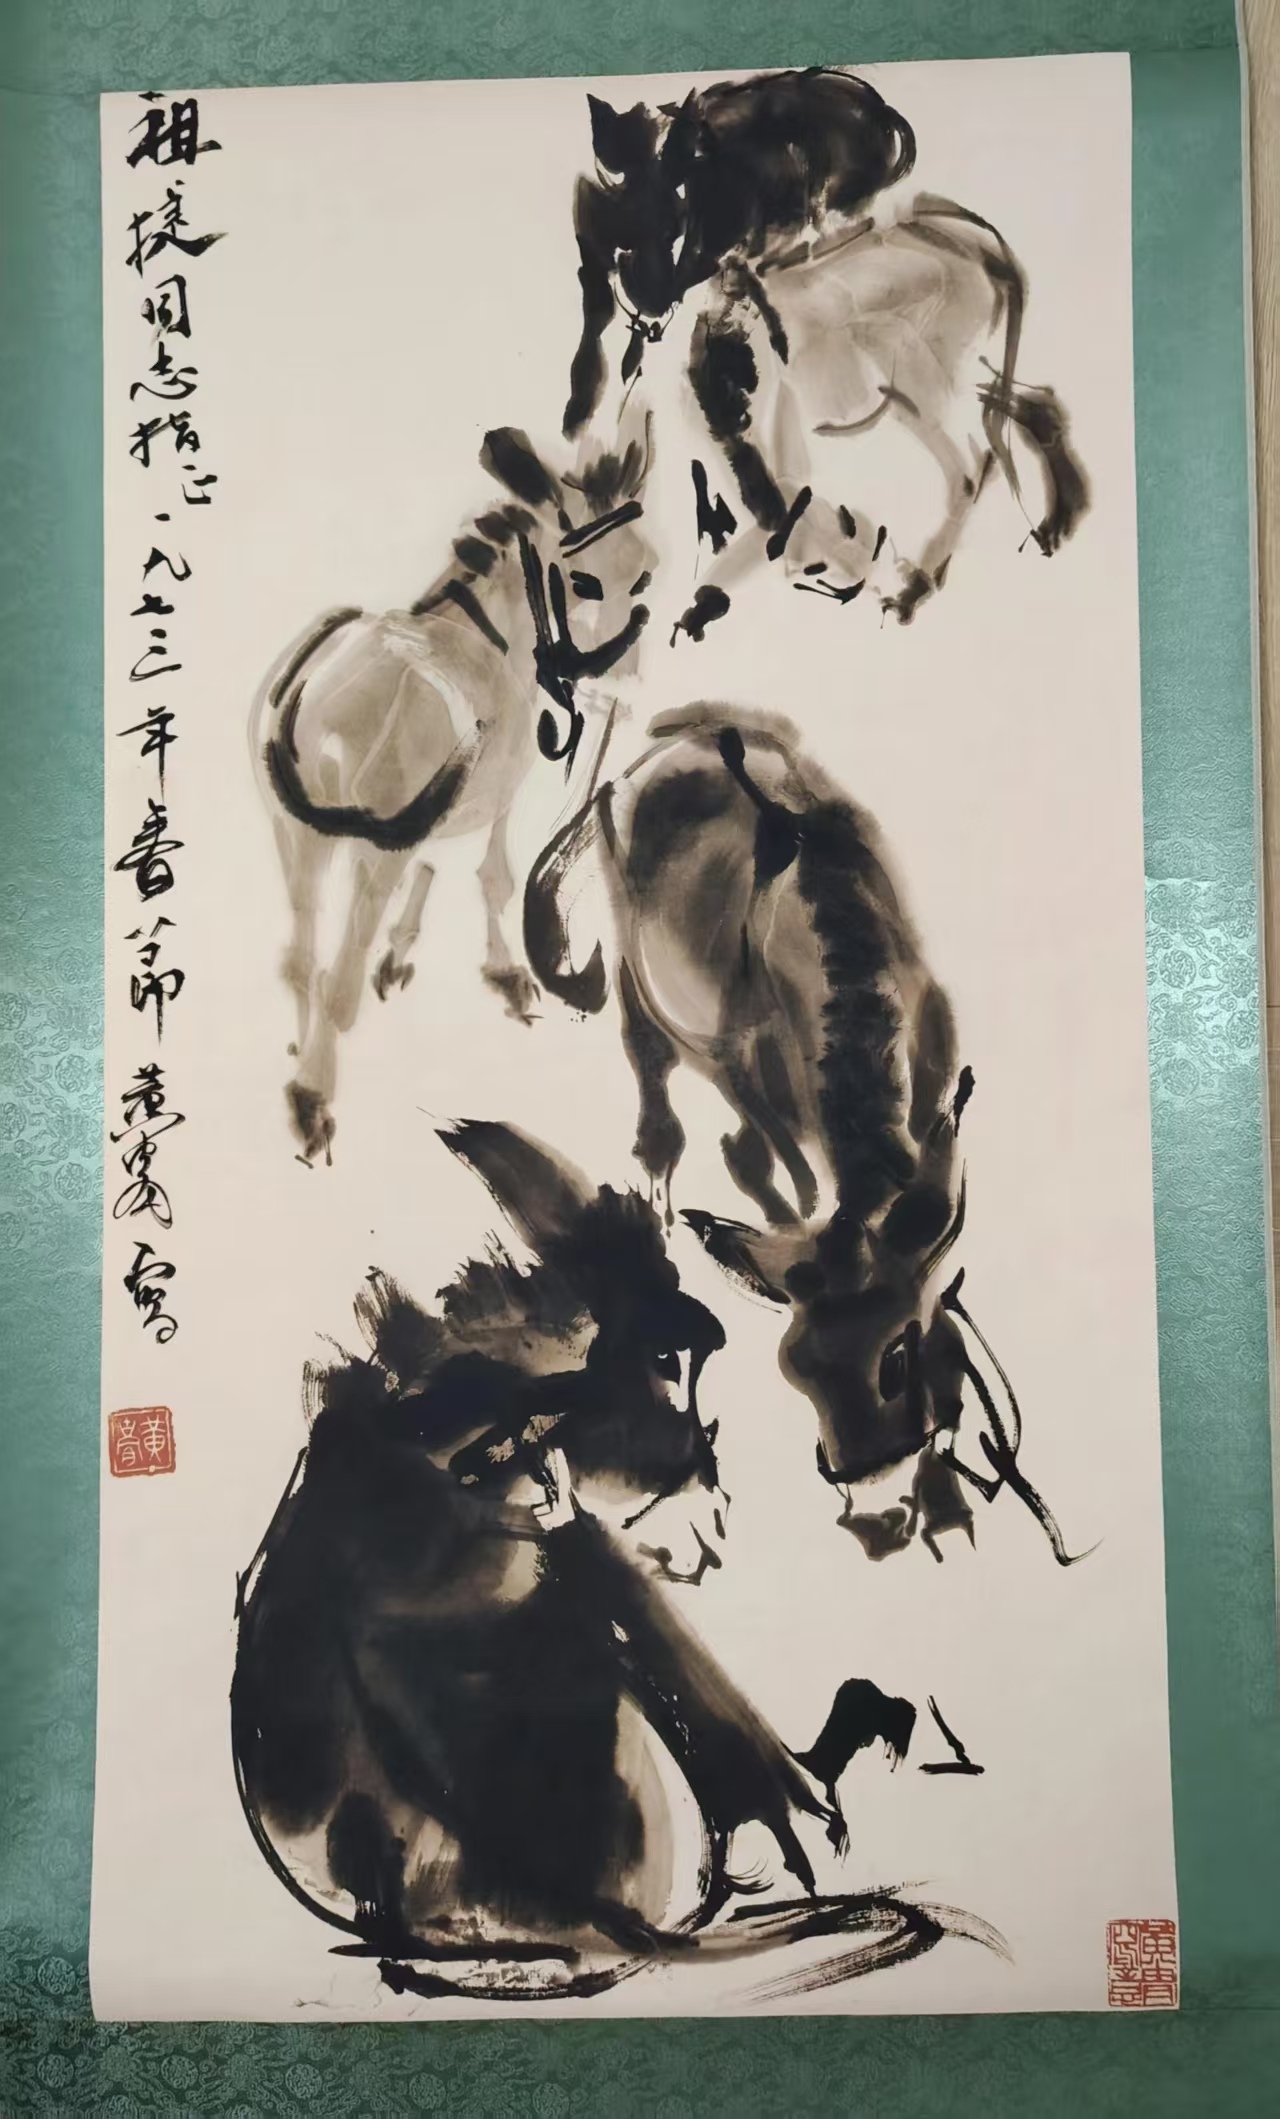 祖捷同志指正一九七三年春节黄胄写
黄胄